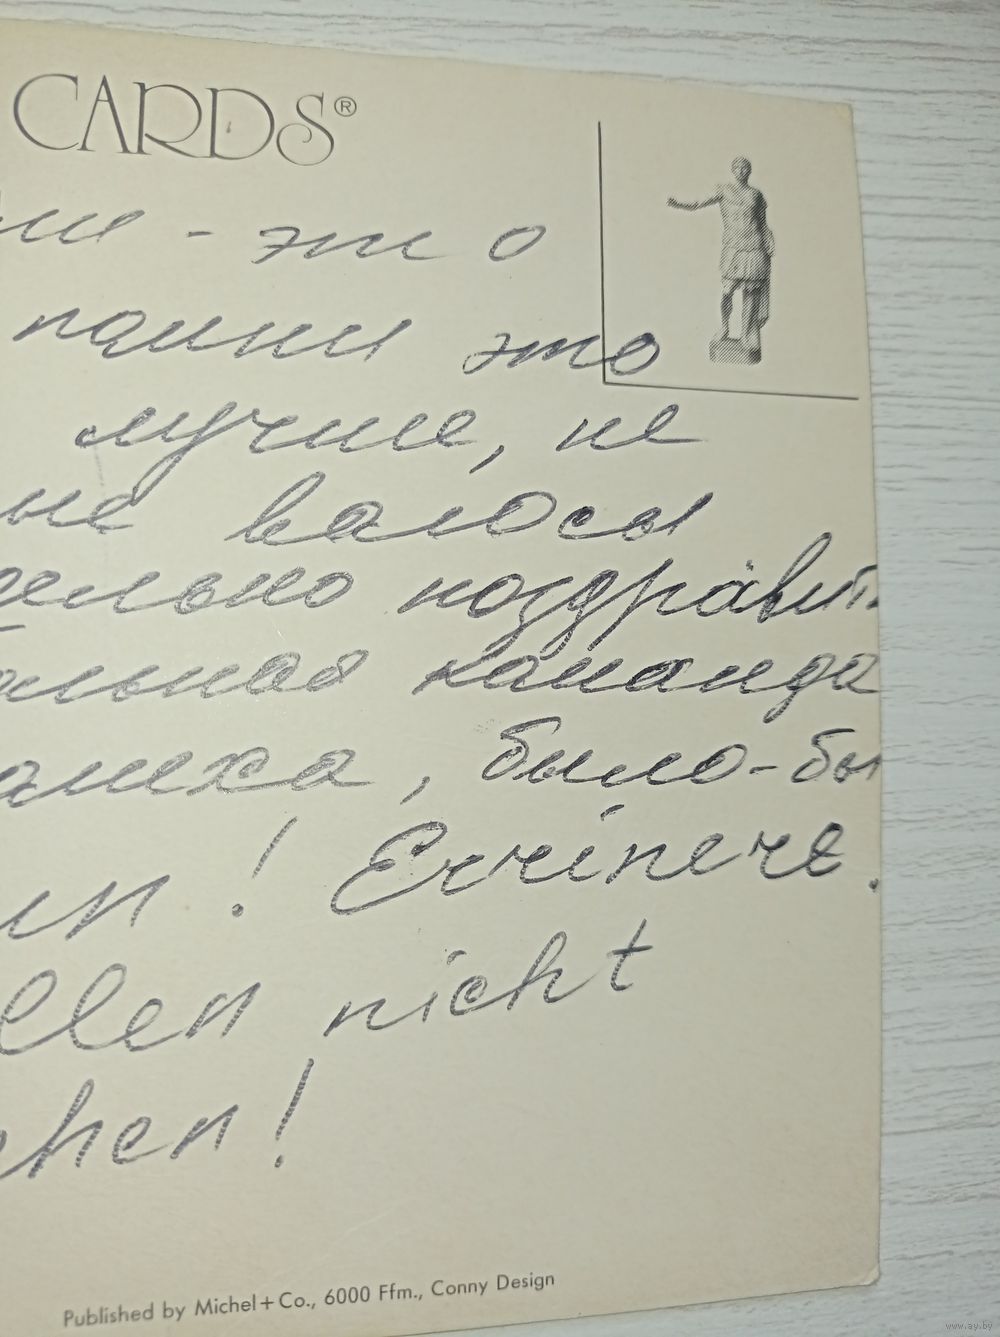 CARDS®
- это
помни это
лучше, не
ые валосы
дельно поздравит
альная команда
, было-бы
! Errinere.
ellen nicht
ehen!
Published by Michel+Co., 6000 Ffm., Conny Design
www.ay.by